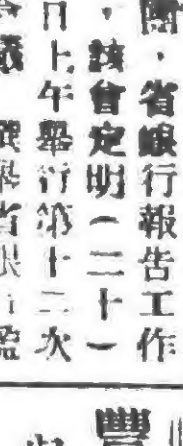 關，省銀行報告工作
，該會定明（二十一
日上午舉行第十二次
會議　選舉省銀行監
豐